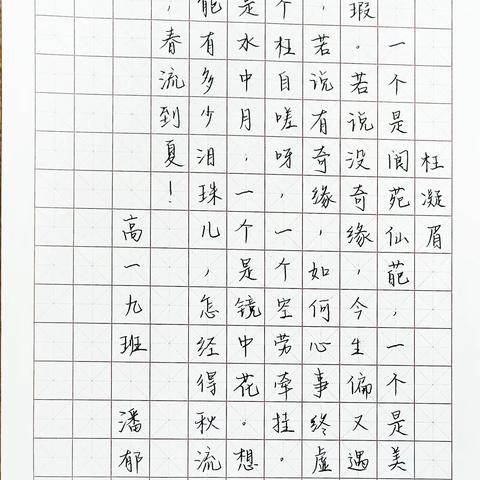 枉凝眉
一个是阆苑仙葩，一个是美
瑕。若说没奇缘，今生偏又遇
，若说有奇缘，如何心事终虚
个枉自嗟呀，一个空劳牵挂。
是水中月，一个是镜中花。想
能有多少泪珠儿，怎经得秋流
，春流到夏！
高一九班 潘郁